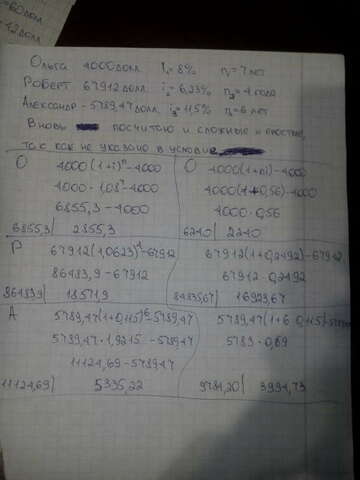 60 долл
12 долл.
Ольга 4000 долл. i₁ = 8% n₁ = 7 лет
Роберт 67912 долл. i₂ = 6,23% n₂ = 4 года
Александр - 5789,47 долл. i₃ = 11,5% n₃ = 6 лет
Вновь посчитаю и сложные и простые,
так как не указано в условии
О
4000(1+i)ⁿ-4000
4000·1,08⁷-4000
6855,3 - 4000
6855,3 | 2855,3
О
4000(1+ni)-4000
4000(1+0,56)-4000
4000·0,56
6240 | 2240
Р
67912(1,0623)⁴-67912
86483,9 - 67912
86483,9 | 18571,9
67912(1+0,2492)-67912
67912·0,2492
84835,67 | 16923,67
А
5789,47(1+0,115)⁶-5789,47
5789,47·1,9215 - 5789,47
11124,69 - 5789,47
11124,69 | 5335,22
5789,47(1+6·0,115)-
5789·0,69
9784,20 | 3994,73